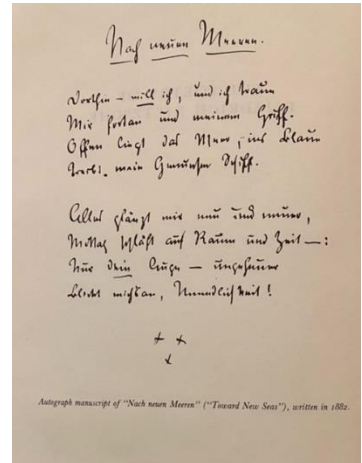 Nach neuen Meeren.
Dorthin – will ich, und ich traue
Mir fortan und meinem Griff.
Offen liegt das Meer, ins Blaue
Treibt mein Genueser Schiff.
Alles glänzt mir neu und neuer,
Mittag schläft auf Raum und Zeit –:
Nur dein Auge – ungeheuer
Blickt mich an, Unendlichkeit!
Autograph manuscript of "Nach neuen Meeren" ("Toward New Seas"), written in 1882.